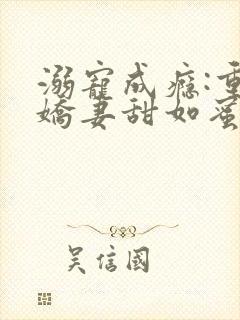 溺寵成癮:重
嬌妻甜如蜜
吴信國